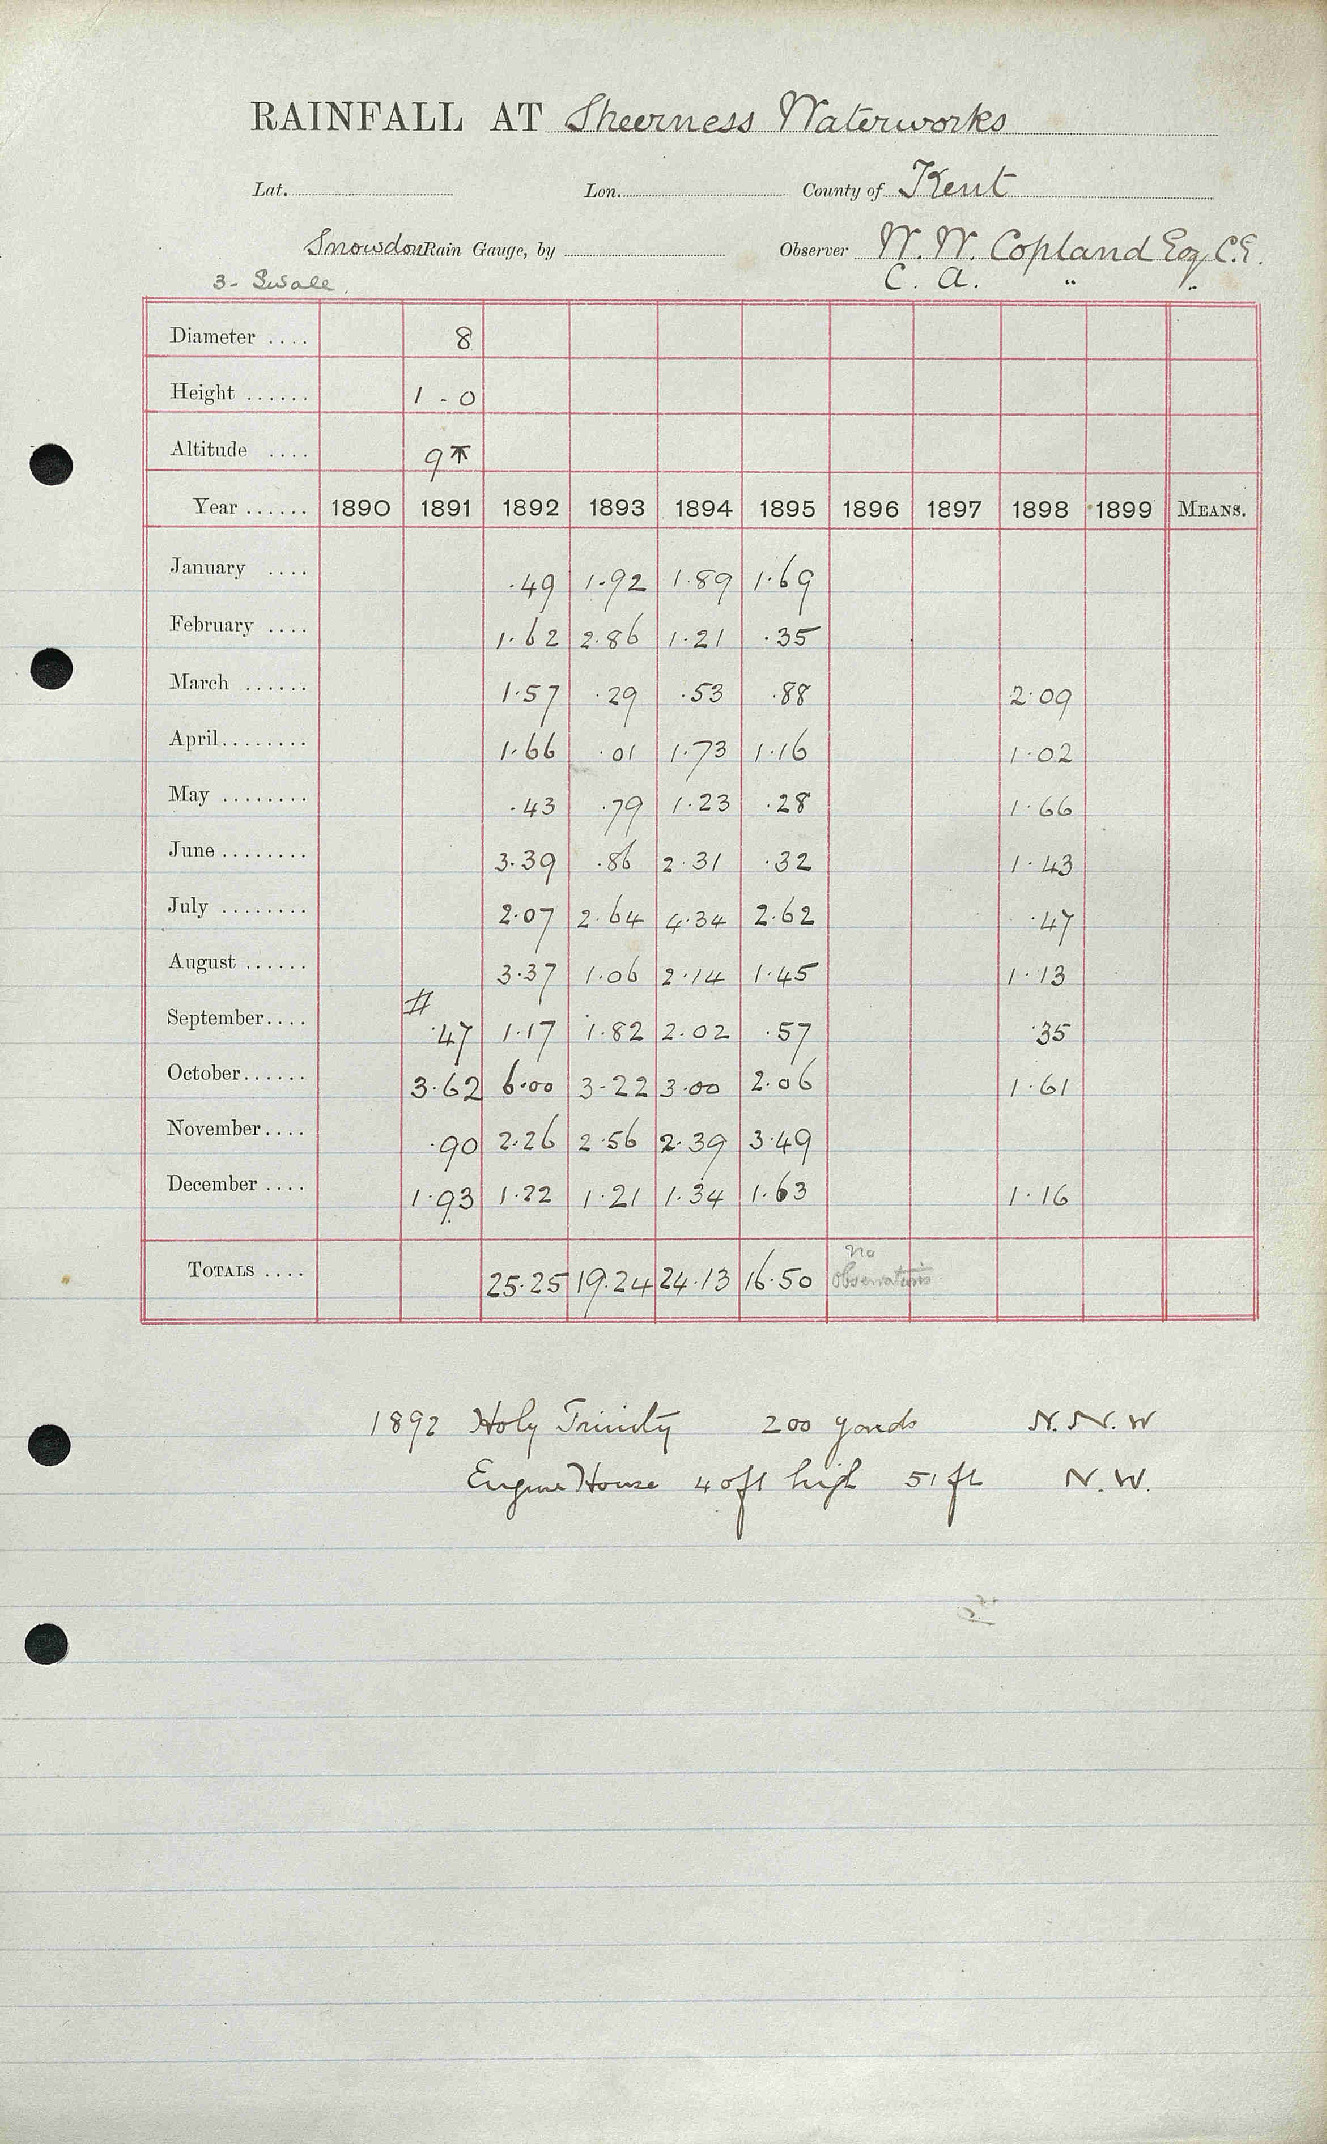 RAINFALL AT Sheerness Waterworks
Lat. Lon. County of Kent
Snowdon Rain Gauge, by Observer W. W. Copland Esq C.E.
3 - Swale. C. A. " "
Diameter .... 8
Height ...... 1 - 0
Altitude .... 9
Year ...... 1890 1891 1892 1893 1894 1895 1896 1897 1898 1899 MEANS.
January .... .49 1.92 1.89 1.69
February .... 1.62 2.86 1.21 .35
March ...... 1.57 .29 .53 .88 2.09
April........ 1.66 .01 1.73 1.16 1.02
May ........ .43 .79 1.23 .28 1.66
June ........ 3.39 .86 2.31 .32 1.43
July ........ 2.07 2.64 4.34 2.62 .47
August ...... 3.37 1.06 2.14 1.45 1.13
#
September.... .47 1.17 1.82 2.02 .57 .35
October...... 3.62 6.00 3.22 3.00 2.06 1.61
November.... .90 2.26 2.56 2.39 3.49
December .... 1.93 1.22 1.21 1.34 1.63 1.16
TOTALS .... 25.25 19.24 24.13 16.50 no observations
1892 Holy Trinity 200 yards N.N.W
Engine House 40ft high 51 ft N.W.